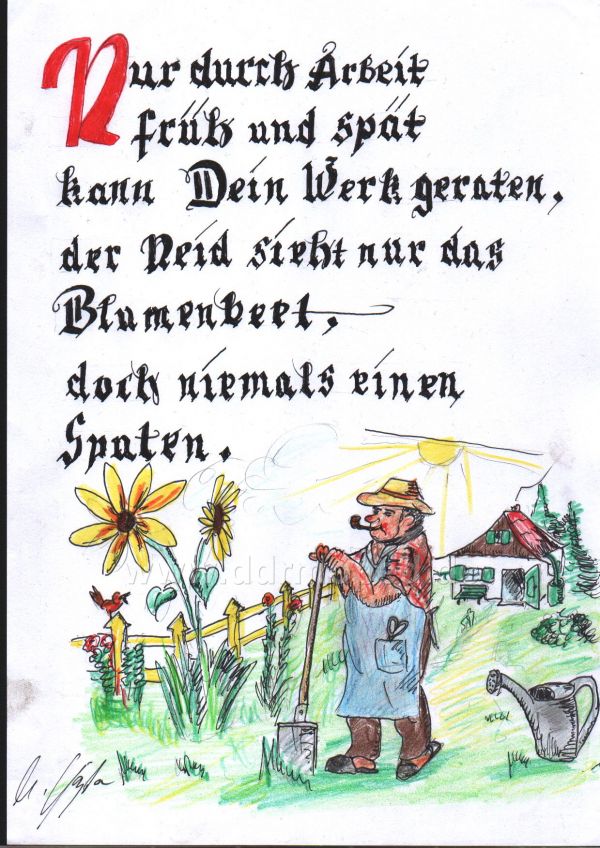 Nur durch Arbeit
früh und spät
kann Dein Werk geraten,
der Neid sieht nur das
Blumenbeet,
doch niemals einen
Spaten.